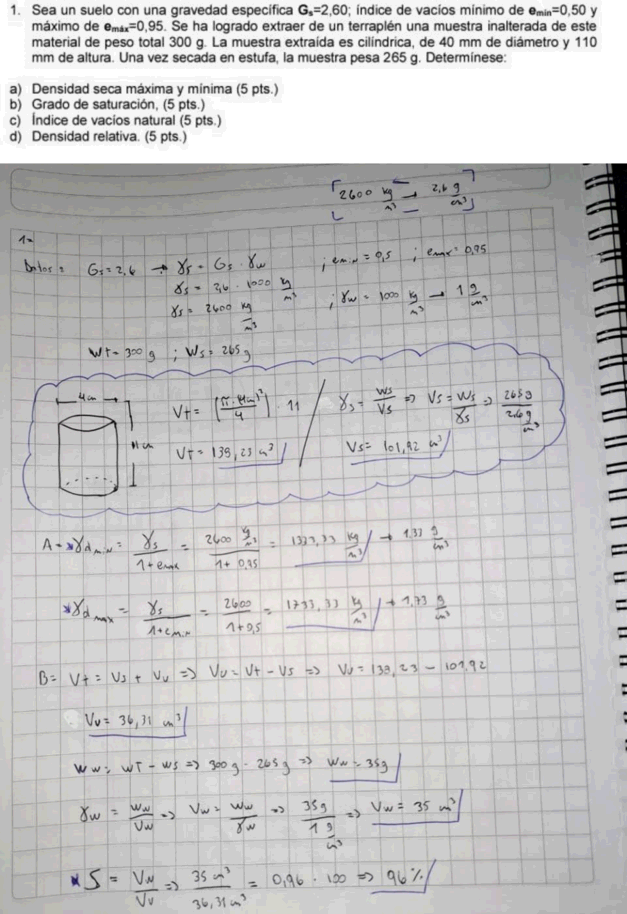 1. Sea un suelo con una gravedad específica Gs=2,60; índice de vacíos mínimo de emin=0,50 y
máximo de emáx=0,95. Se ha logrado extraer de un terraplén una muestra inalterada de este
material de peso total 300 g. La muestra extraída es cilíndrica, de 40 mm de diámetro y 110
mm de altura. Una vez secada en estufa, la muestra pesa 265 g. Determínese:
a) Densidad seca máxima y mínima (5 pts.)
b) Grado de saturación, (5 pts.)
c) Índice de vacíos natural (5 pts.)
d) Densidad relativa. (5 pts.)
2600 kg/m³ → 2,6 g/cm³
1=
Datos = Gs = 2,6 → γs = Gs · γw ; emin = 0,5 ; emax = 0,95
γs = 2,6 · 1000 kg/m³ ; γw = 1000 kg/m³ → 1 g/cm³
γs = 2600 kg/m³
Wt = 300 g ; Ws = 265 g
4cm
11 cm
Vt = (π·(4cm)²/4) · 11 / γs = Ws/Vs => Vs = Ws/γs => 265g/2,6 g/cm³
Vt = 138,23 cm³ Vs = 101,92 cm³
A- *γdmin = γs/1+emax = 2600 kg/m³/1+0,95 = 1333,33 kg/m³ → 1,33 g/cm³
*γdmax = γs/1+emin = 2600/1+0,5 = 1733,33 kg/m³ → 1,73 g/cm³
B= Vt = Vs + Vv => Vv = Vt - Vs => Vv = 138,23 - 101,92
Vv = 36,31 cm³
Ww = WT - Ws => 300g - 265g => Ww = 35g
γw = Ww/Vw => Vw = Ww/γw => 35g/1 g/cm³ => Vw = 35 cm³
* S = Vw/Vv => 35 cm³/36,31 cm³ = 0,96 · 100 => 96%